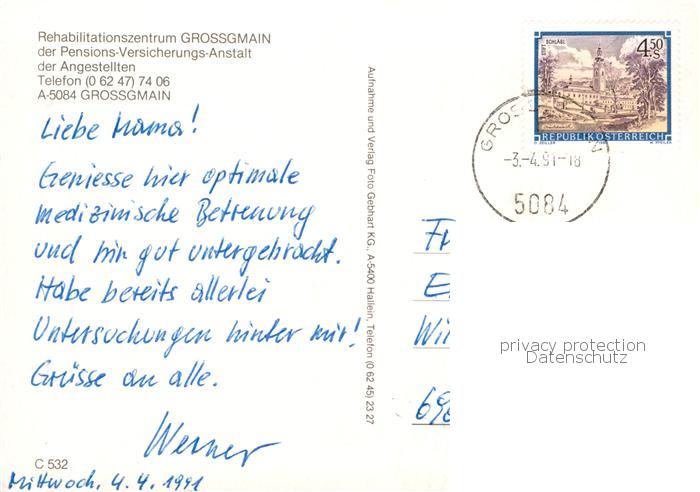 Rehabilitationszentrum GROSSGMAIN
der Pensions-Versicherungs-Anstalt
der Angestellten
Telefon (0 62 47) 74 06
A-5084 GROSSGMAIN
Liebe Mama!
Geniesse hier optimale
medizinische Betreuung
und bin gut untergebracht.
Habe bereits allerlei
Untersuchungen hinter mir!
Grüsse an alle.
Werner
C 532
Mittwoch, 4.4.1991
Aufnahme und Verlag Foto Gebhart KG., A-5400 Hallein, Telefon (0 62 45) 23 27
STIFT SCHLÄGL
4.50 S
REPUBLIK ÖSTERREICH
O. ZEILLER
W. PFEILER
-3.-4.91-18
5084
Wi
privacy protection
Datenschutz